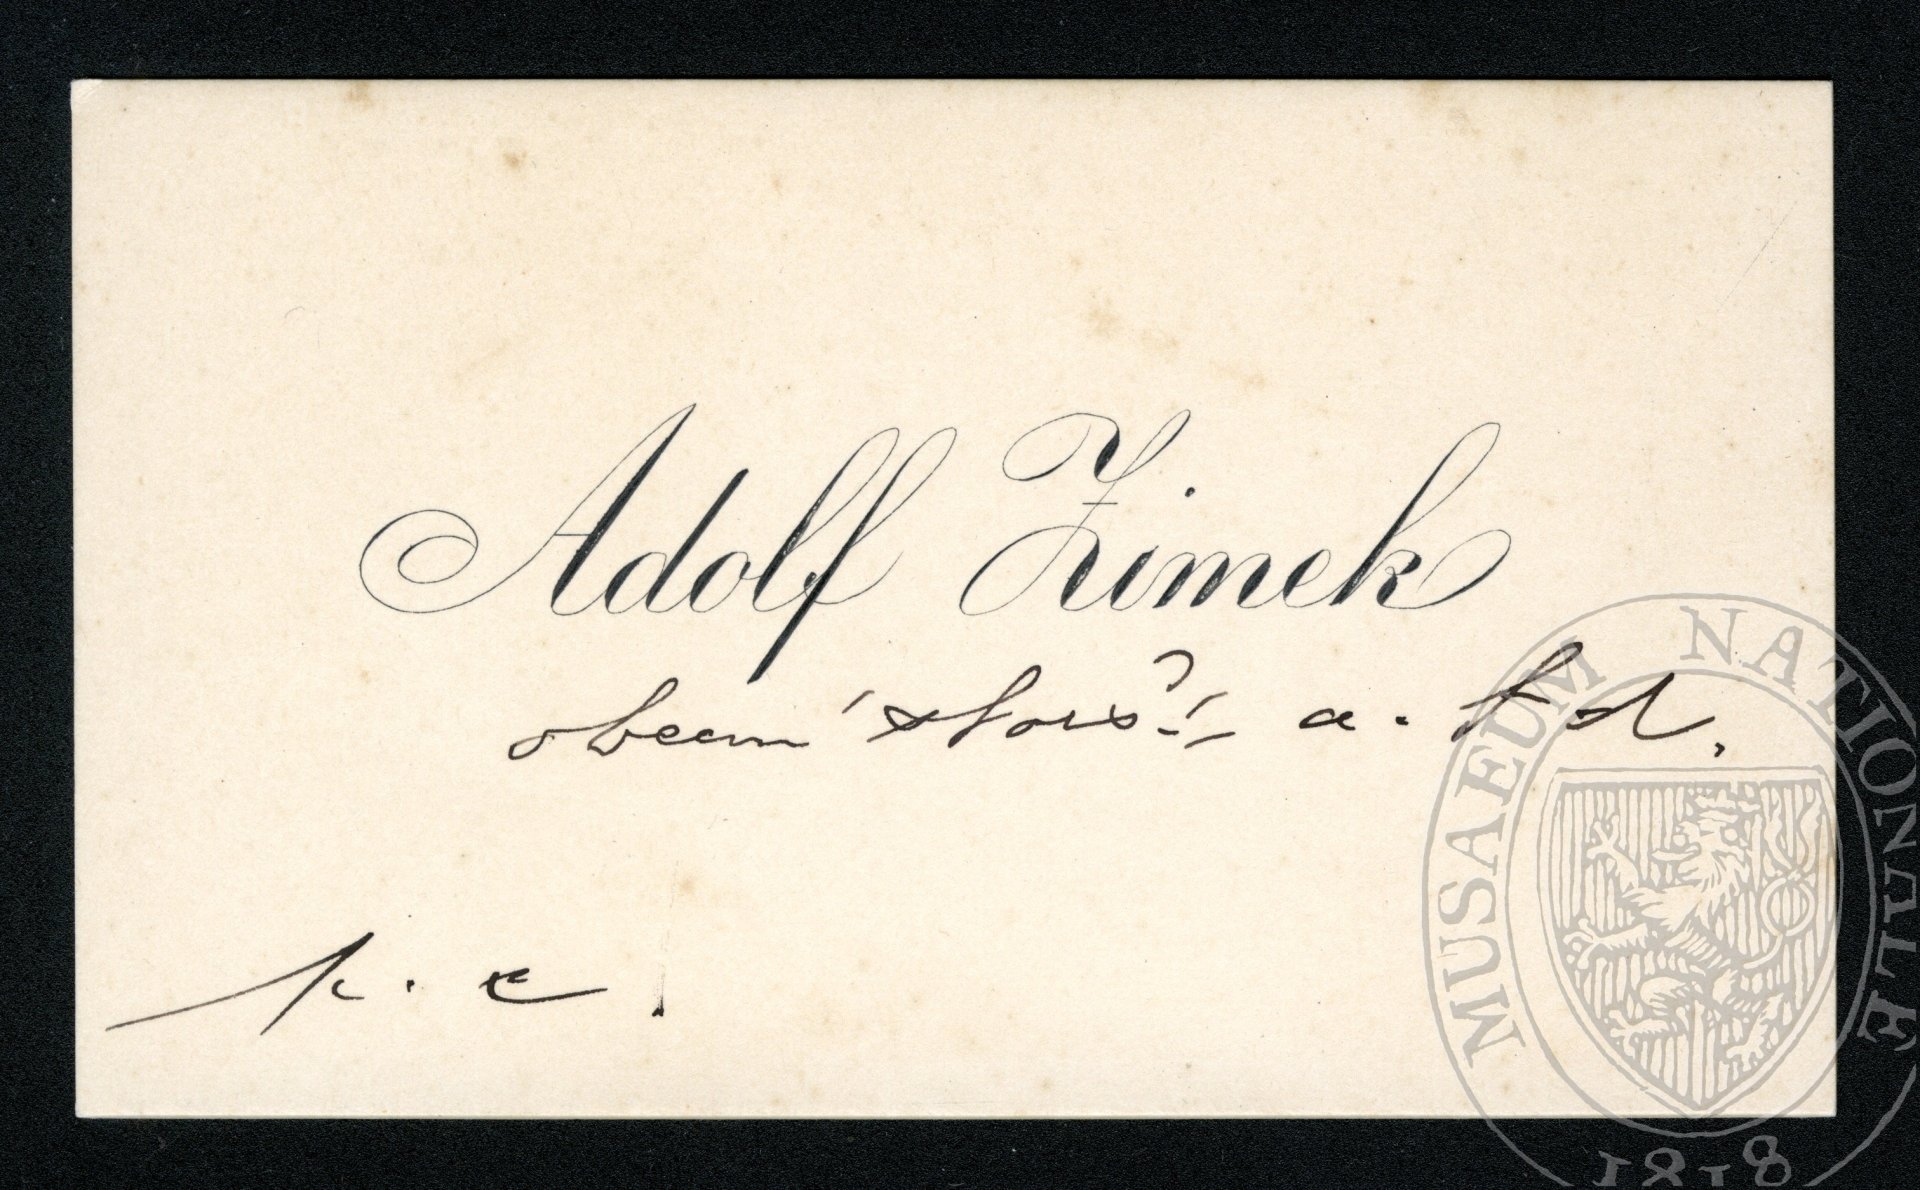 Adolf Zimek
obecní
a. t d.
p. c.
MUSAEUM NATIONALE
1818